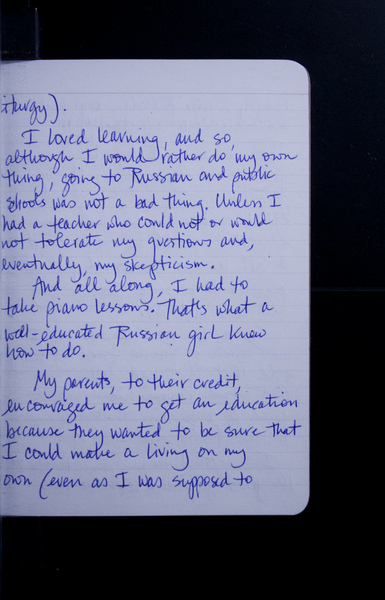 iturgy).
I loved learning, and so,
although I would rather do my own
thing, going to Russian and public
schools was not a bad thing. Unless I
had a teacher who could not or would
not tolerate my questions and,
eventually, my skepticism.
And all along, I had to
take piano lessons. That's what a
well-educated Russian girl knew
how to do.
My parents, to their credit,
encouraged me to get an education
because they wanted to be sure that
I could make a living on my
own (even as I was supposed to